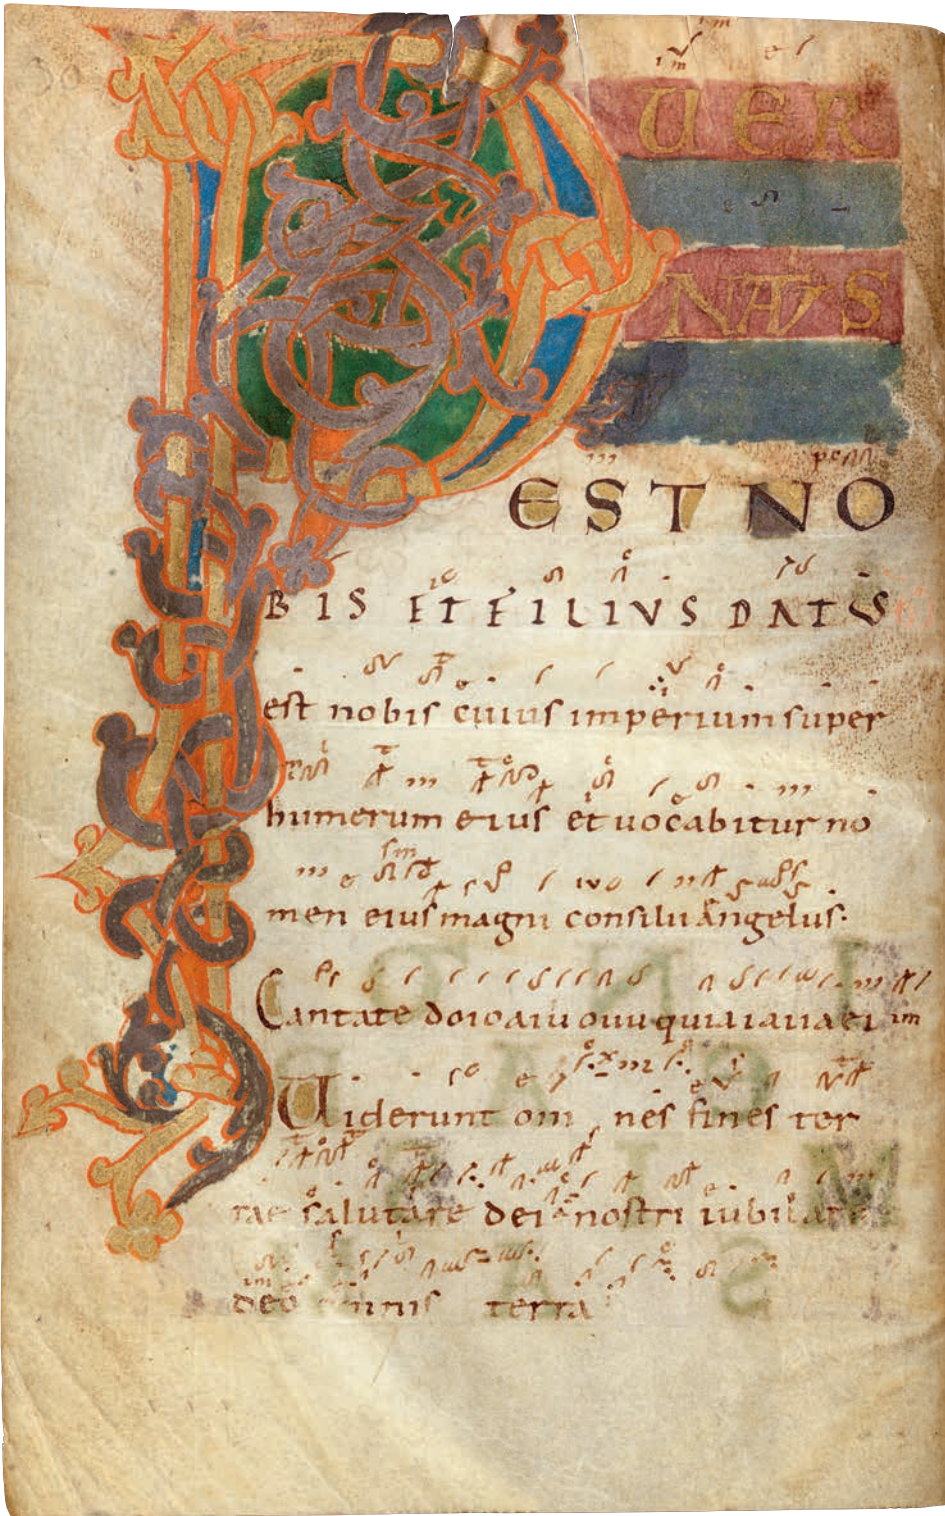 PUER
NATUS
EST NO
BIS ET FILIUS DATUS
est nobis cuius imperium super
humerum eius et uocabitur no
men eius magni consilii angelus.
Cantate
Uiderunt om nes fines ter
rae salutare dei nostri iubilate
deo omnis terra